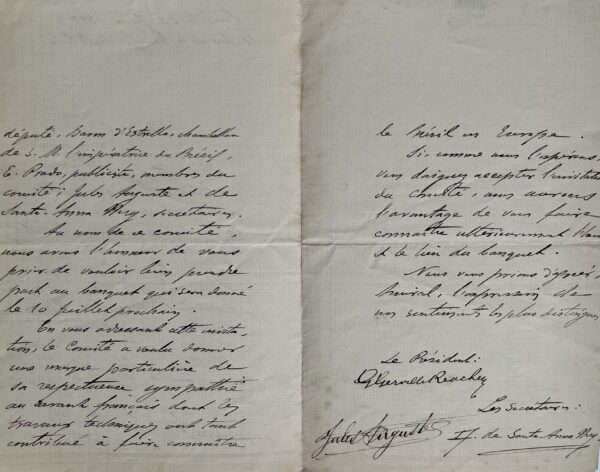 député, Baron d'Estrella, chambellan
de S. M. l'impératrice du Brésil,
E. Prado, publiciste, membres du
comité; Jules Auguste et de
Santa-Anna Nery, secrétaires.
Au nom de ce comité,
nous avons l'honneur de vous
prier de vouloir bien prendre
part au banquet qui sera donné
le 10 juillet prochain.
En vous adressant cette invita-
tion, le Comité a voulu donner
une marque particulière de
sa respectueuse sympathie
au savant français dont les
travaux techniques ont tant
contribué à faire connaître
le Brésil en Europe.
Si, comme nous l'espérons,
vous daignez accepter l'invitation
du Comité, nous aurons
l'avantage de vous faire
connaître ultérieurement
et le lieu du banquet.
Nous vous prions d'agréer,
Amiral, l'expression de
nos sentiments les plus distingués
Le Président:
Les Secrétaires:
Jules Auguste
F. J. de Santa-Anna Nery